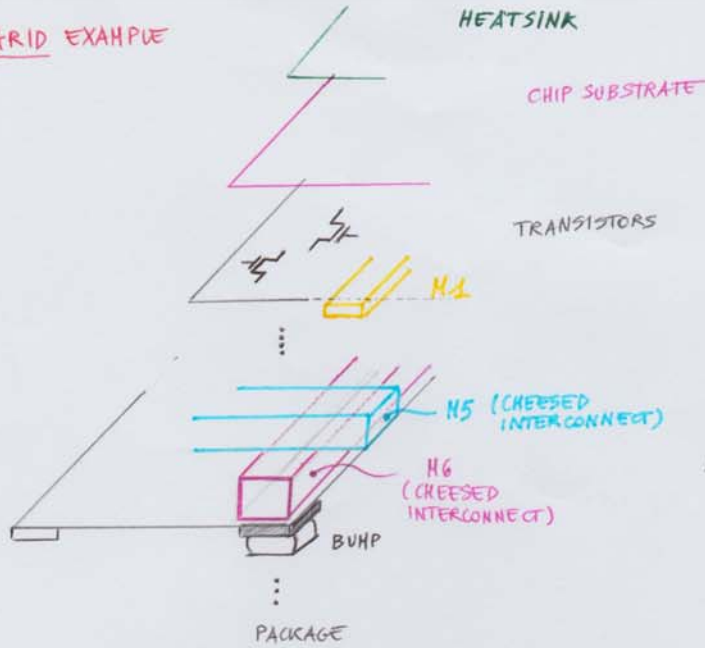 EXAMPLE
HEATSINK
CHIP SUBSTRATE
TRANSISTORS
M1
M5 (CHEESED
INTERCONNECT)
M6
(CHEESED
INTERCONNECT)
BUMP
PACKAGE